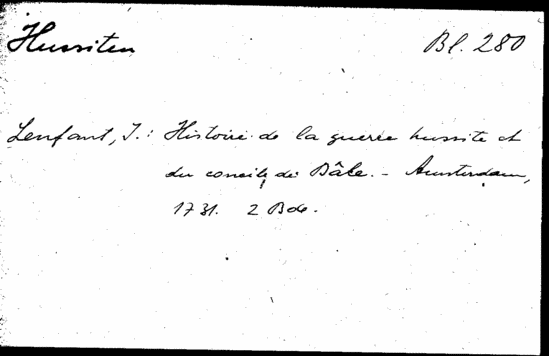 Hussiten
Bl. 280
Lenfant, J.: Histoire de la guerre hussite et
du concile de Bâle. - Amsterdam,
1731. 2 Bde.